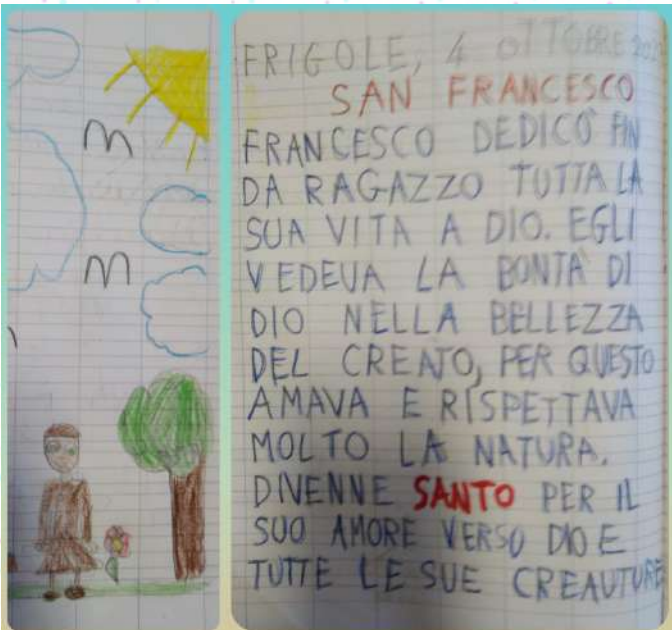 FRIGOLE, 4 OTTOBRE
SAN FRANCESCO
FRANCESCO DEDICÒ FIN
DA RAGAZZO TUTTA LA
SUA VITA A DIO. EGLI
VEDEVA LA BONTÀ DI
DIO NELLA BELLEZZA
DEL CREATO, PER QUESTO
AMAVA E RISPETTAVA
MOLTO LA NATURA.
DIVENNE SANTO PER IL
SUO AMORE VERSO DIO E
TUTTE LE SUE CREAUTURE